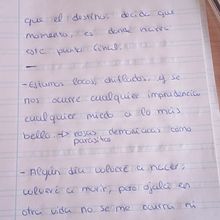 que el destino decida que
momento, es donde nacera
este punto final.
- Estamos locos, chiflados, y se
nos ocurre cualquier imprudencia
cualquier miedo a lo más
bello. → cosas demoníacas como
parasitos
- Algún día volveré a nacer,
volveré a morir, pero ojalá en
otra vida no se me ocurra ni